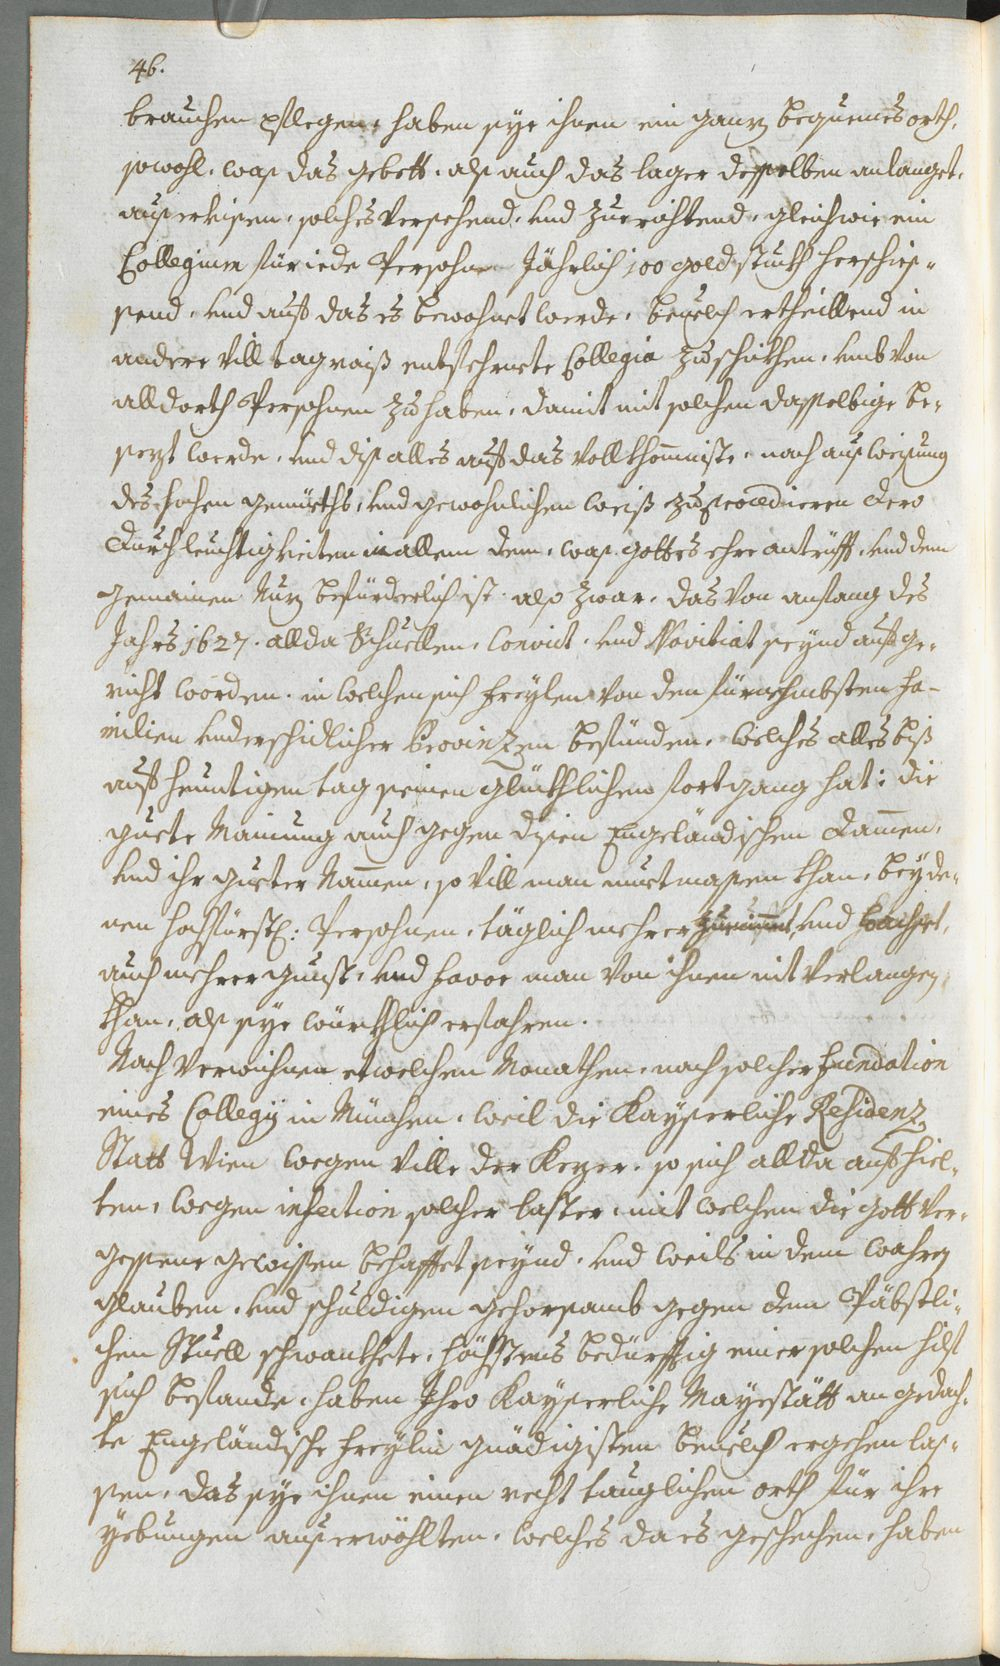 46.
brauchen pflegen, haben sye ihnen ein ganz bequemes orth,
sowohl, was das gebett, als auch das lager desselben anlanget,
auserkisen, solches versehend, und zuerichtend, gleichwie ein
Collegium für iede Persohn Jährlich 100 gold stuckh herschies-
send, und auf das es bewohnet werde, bevelch ertheillend in
andere vill tagrais entfehrnete Collegia zu schikhen, umb von
alldorth Persohnen zu haben, damit mit solchen dasselbige be-
sezt werde, und dis alles auf das vollkhomniste, nach ausweisung
des hohen gemüeths, und gewohnlichen weis zu procedieren dero
Durchleuchtigkeiten in allem dem, was gottes ehre antrifft, und dem
gemainen Nuz befürderlich ist, also zwar, das von anfang des
Jahrs 1627. allda Schuellen, Convict, und Novitiat seynd aufge-
richt worden, in welchen sich Freylen von den fürnehmbsten Fa-
milien underschidlicher Provinzen befünden, welches alles bis
auf heuntigen tag seinen glückhlichen fortgang hat: die
guete Mainung auch gegen disen Engeländischen Damen,
und ihr gueter Namen, so vill man muetmassen khan, bey de-
nen hochfürstl: Persohnen, täglich mehrer zuenimmt, und wachset,
auch mehrer gunst, und favor man von ihnen nit verlangen
khan, als sye würckhlich erfahren.
Nach verwichnen etwelchen Monathen, nach solcher Fundation
eines Collegij in München, weil die Kayserliche Residenz
Statt Wien wegen ville der Kezer, so sich allda aufhiel-
ten, wegen infection solcher laster, mit welchen die gott ver-
gessene gewissen behafftet seynd, und weils in dem wahren
glauben, und schuldigen gehorsamb gegen dem Päbstli-
chen Stuell schwankhete, höchstens bedürfftig einer solchen hilf
sich befande, haben Ihro Kayserliche Mayestätt an gedach-
te Engeländische Freylin gnädigisten bevelch ergehen las-
sen, das sye ihnen einen recht tauglichen orth für ihre
yebungen auserwöhlten, welches da es geschehen, haben